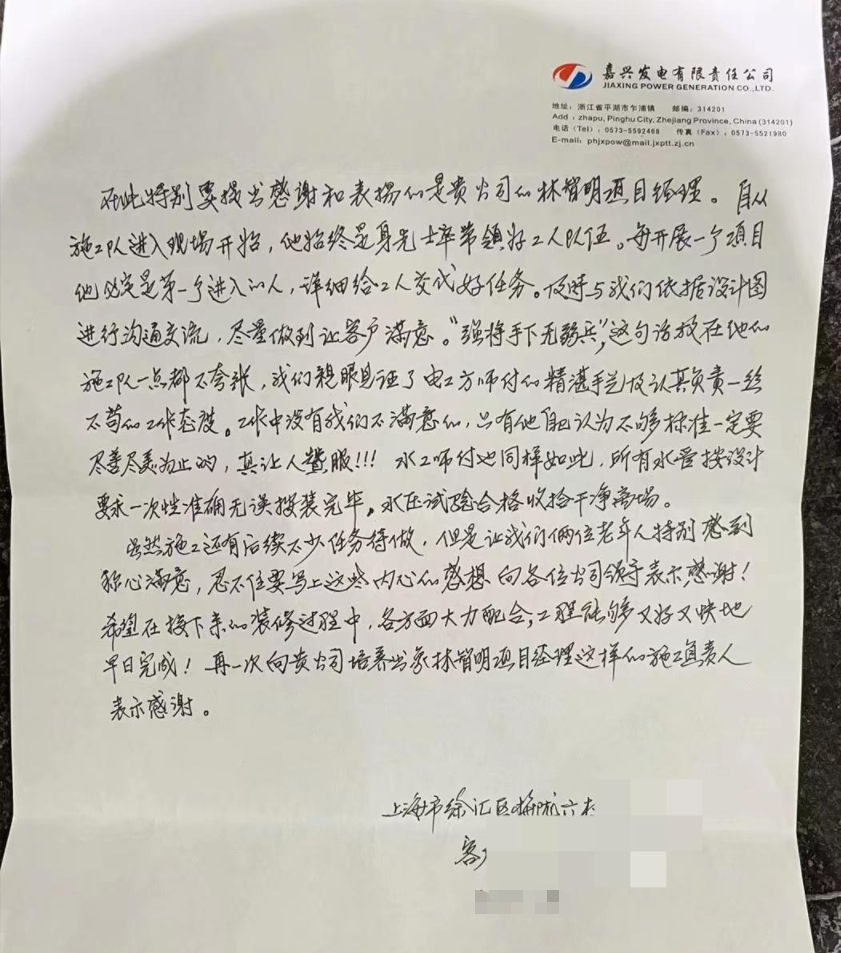 嘉兴发电有限责任公司
JIAXING POWER GENERATION CO.,LTD.
地址：浙江省平湖市乍浦镇 邮编：314201
Add：zhapu, Pinghu City, Zhejiang Province, China (314201)
电话（Tel）：0573-5592468 传真（Fax）：0573-5521980
E-mail：phjxpow@mail.jxptt.zj.cn
在此特别要找出感谢和表扬的是贵公司的林智明项目经理。自从
施工队进入现场开始，他始终是身先士卒带领好工人队伍。每开展一个项目
他必定是第一个进入的人，详细给工人交代好任务。及时与我们依据设计图
进行沟通交流，尽量做到让客户满意。"强将手下无弱兵"，这句话放在他的
施工队一点都不夸张，我们亲眼见证了电工方师付的精湛手艺及认真负责一丝
不苟的工作态度。工作中没有我们不满意的，只有他自己认为不够标准一定要
尽善尽美为止的，真让人赞服!!! 水工师付也同样如此，所有水管按设计
要求一次性准确无误按装完毕。水压试验合格收拾干净离场。
虽然施工还有后续不少任务待做，但是让我们俩位老年人特别感到
称心满意，忍不住要写上这些内心的感想向各位公司领导表示感谢！
希望在接下来的装修过程中，各方面大力配合；工程能够又好又快地
早日完成！再一次向贵公司培养出象林智明项目经理这样的施工负责人
表示感谢。
上海市徐汇区梅陇六村
客